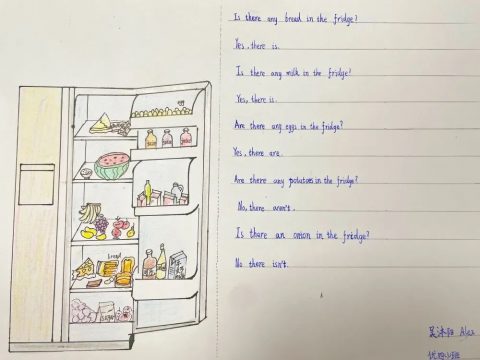 Is there any bread in the fridge?
Yes, there is.
Is there any milk in the fridge?
Yes, there is.
Are there any eggs in the fridge?
Yes, there are.
Are there any potatoes in the fridge?
No, there aren't.
Is there an onion in the fridge?
No there isn't.
bread
Alex